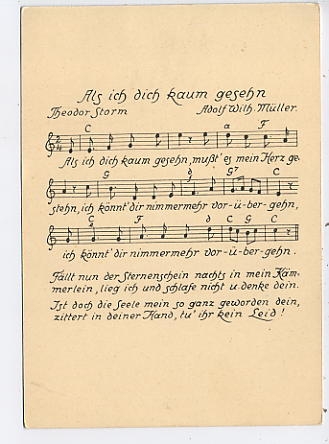 Als ich dich kaum gesehn
Theodor Storm Adolf Wilh. Müller.
C a F
Als ich dich kaum gesehn, mußt' es mein Herz ge-
G d G7 C
stehn, ich könnt' dir nimmermehr vor-ü-ber-gehn,
C F d C G C
ich könnt' dir nimmermehr vor-ü-ber-gehn.
Fällt nun der Sternenschein nachts in mein Käm-
merlein, lieg ich und schlafe nicht u. denke dein.
Ist doch die Seele mein so ganz geworden dein,
zittert in deiner Hand, tu' ihr kein Leid!